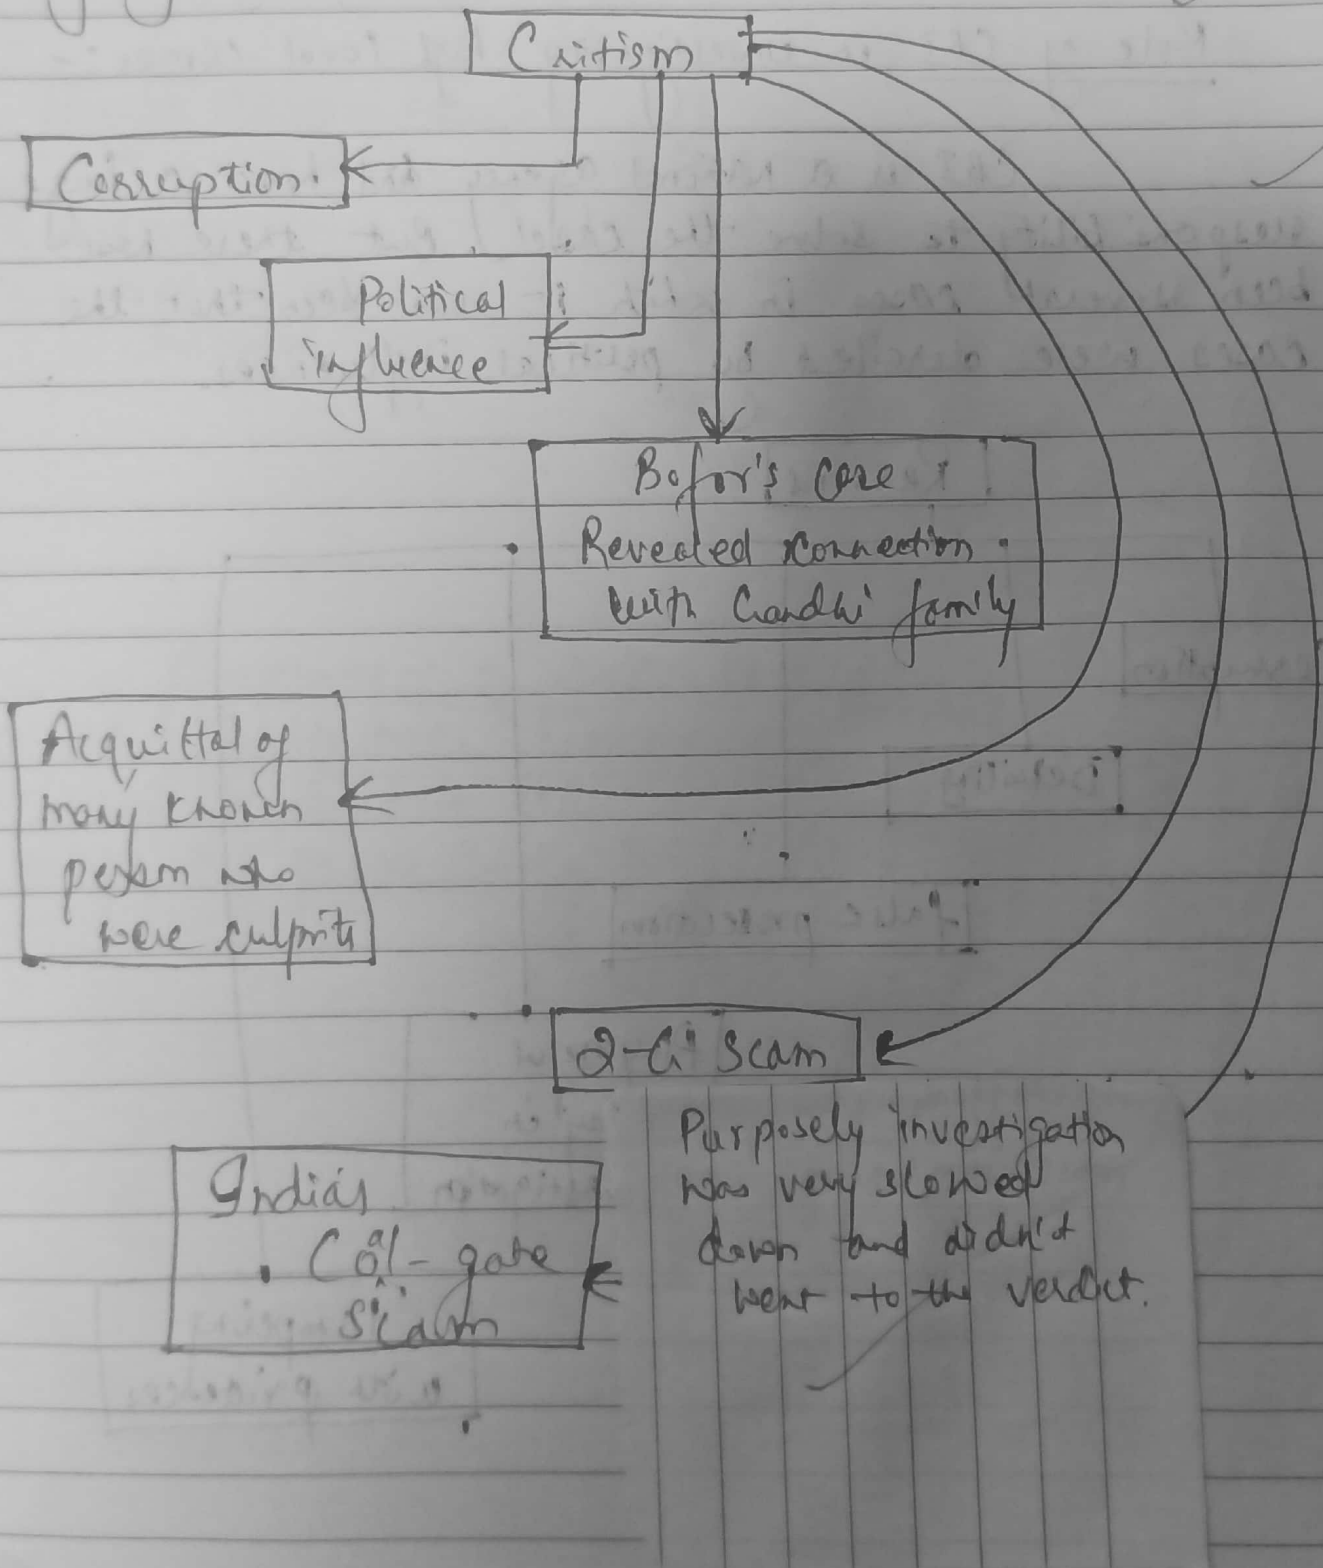 Critism
Corruption.
Political
influence
Bofor's case
Revealed connection
with Gandhi family
Acquittal of
many known
person who
were culprits
2-G Scam
Purposely investigation
was very slowed
down and didn't
went to the verdict.
India's
Coal-gate
Scam